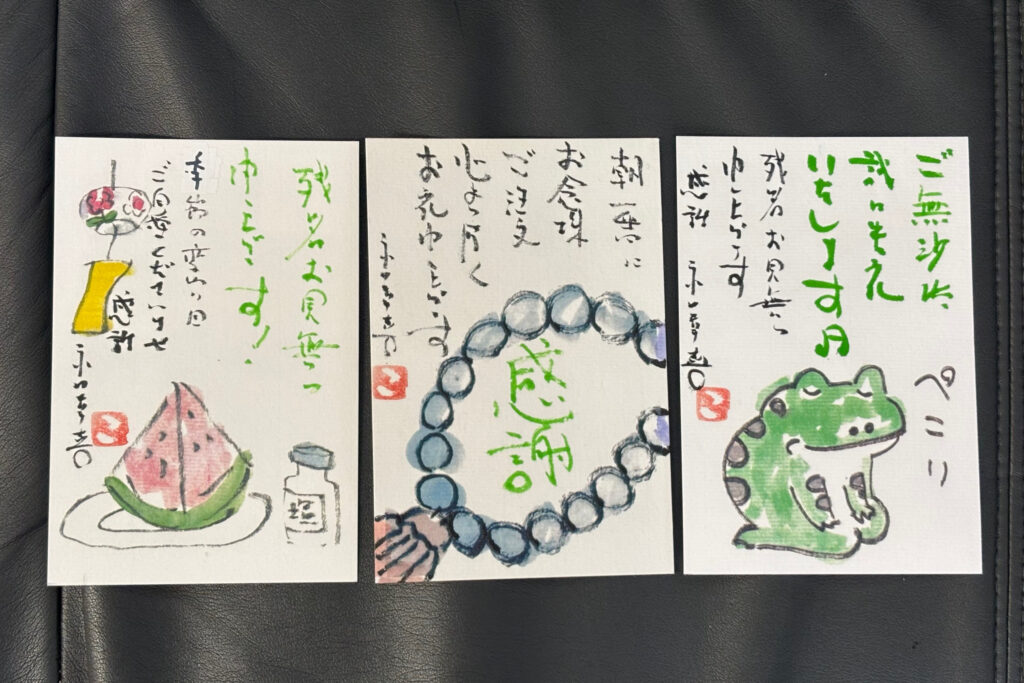 残暑お見舞い
申し上げます!
季節の変わり目
ご自愛くださいませ
感謝
塩
朝一番に
お念珠
ご注文
心より厚く
お礼申し上げます
感謝
ご無沙汰
いたします
ぺこり
残暑お見舞い
申し上げます
感謝